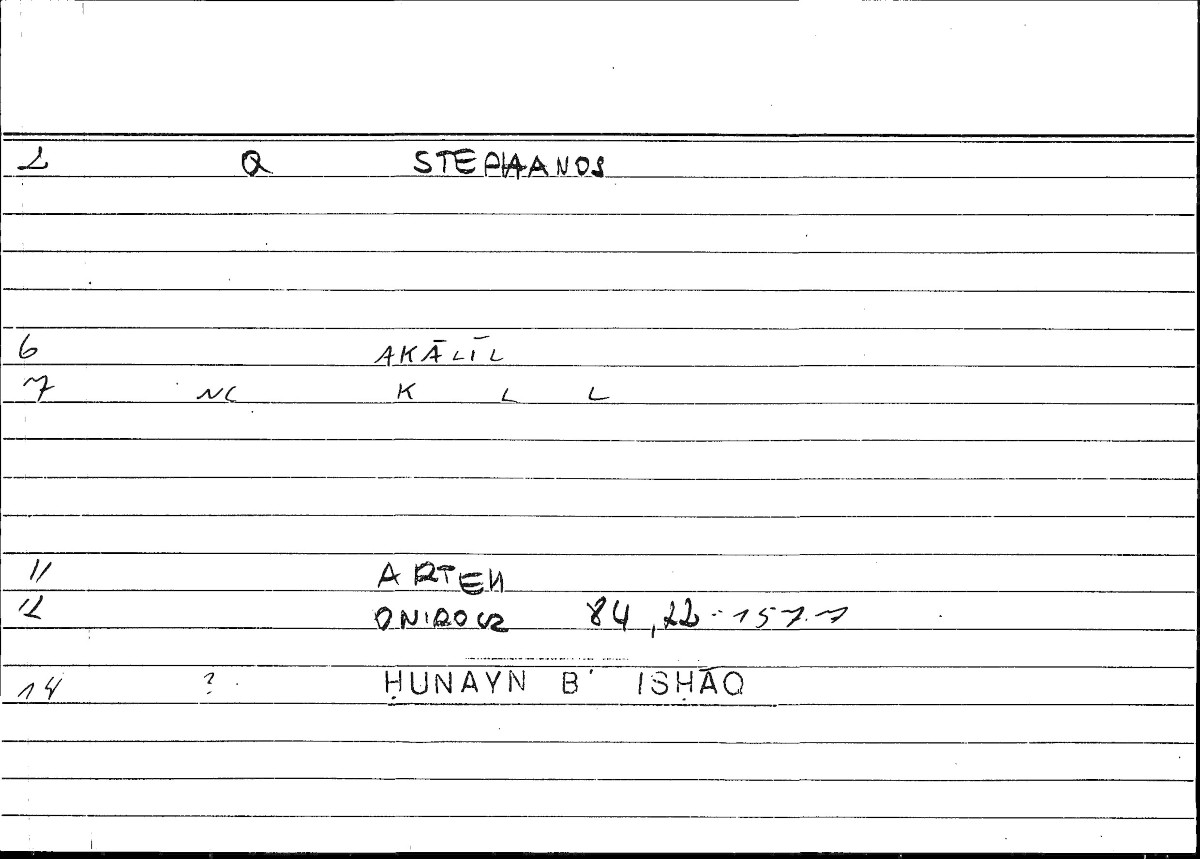 2 Q STEPHANOS
6 AKĀLĪL
7 NC K L L
11 ARTEM
12 ONIROCR 84,22-157.1
14 ? ḤUNAYN B' ISḤĀQ